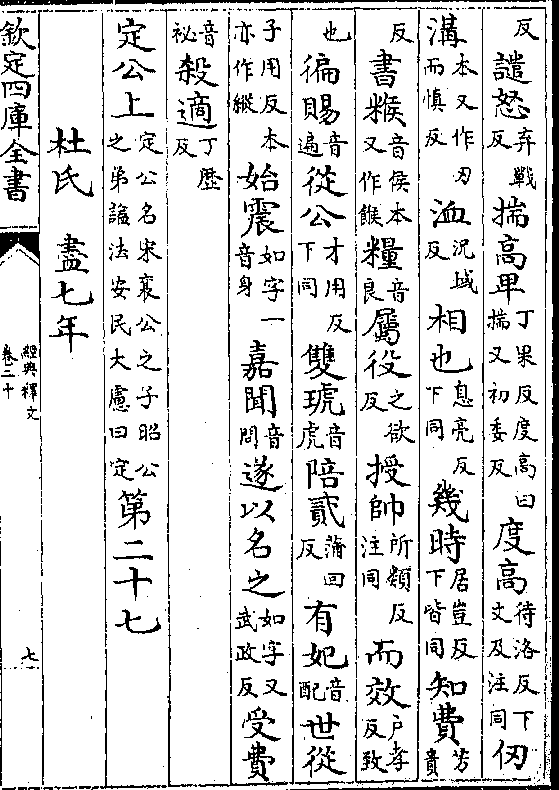 反譴怒弃戰反揣高卑丁果反度高曰揣又初委反度高待洛反下文及注同仞
溝本又作刃而慎反洫況域反相也息亮反下同幾時居豈反下皆同知費芳貴
反書糇音侯本又作餱糧音良屬役之欲反授帥所類反注同而效戶孝反致
也徧賜音遍從公才用反下同雙琥音虎陪貳蒲回反有妃音配世從
子用反本亦作縱始震如字一音身嘉聞音問遂以名之如字又武政反受費
音祕殺適丁歷反
定公上定公名宋襄公之子昭公之弟諡法安民大慮曰定第二十七
杜氏 盡七年
欽定四庫全書
經典釋文
卷二十
七